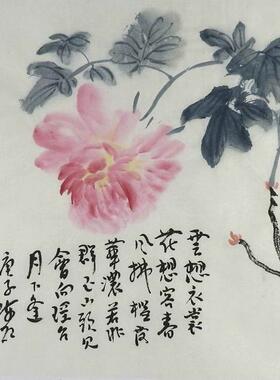 雲想衣裳
花想容春
風拂檻露
華濃若非
群玉山頭見
會向瑤台
月下逢
庚子